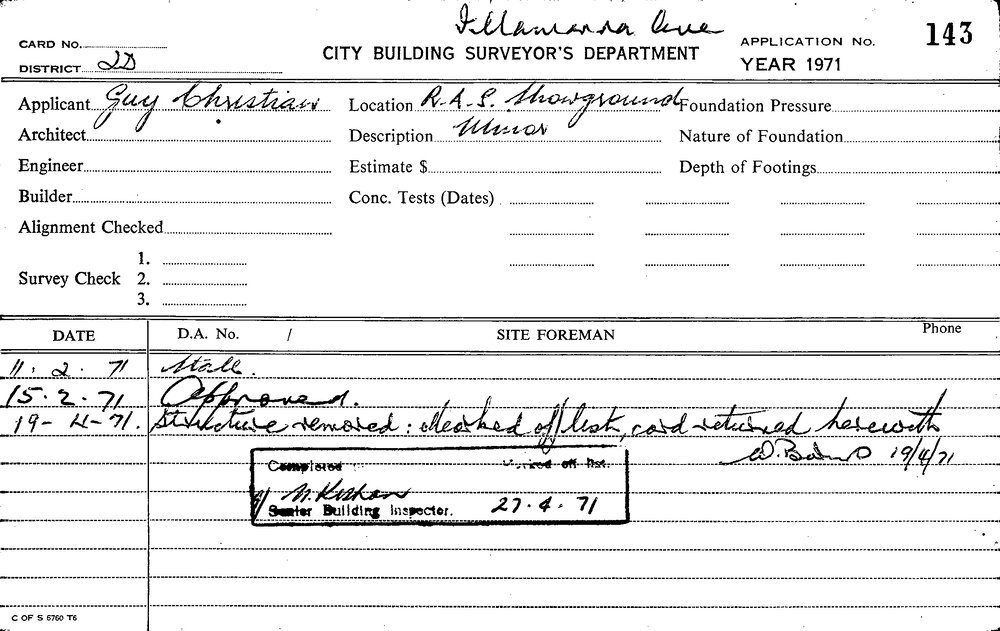 Illawarra Ave
CARD No.
CITY BUILDING SURVEYOR'S DEPARTMENT
APPLICATION No. 143
DISTRICT 2D
YEAR 1971
Applicant Guy Christian Location R.A.S. Showground Foundation Pressure
Architect Description Minor Nature of Foundation
Engineer Estimate $ Depth of Footings
Builder Conc. Tests (Dates)
Alignment Checked
Survey Check 1.
2.
3.
DATE D.A. No. / SITE FOREMAN Phone
11. 2. 71 Stall.
15. 2. 71 Approved.
19-4-71. Structure removed: Marked off list, card returned herewith
19/4/71
Completed Marked off list.
Senior Building Inspector. 27.4.71
C OF S 6760 T6